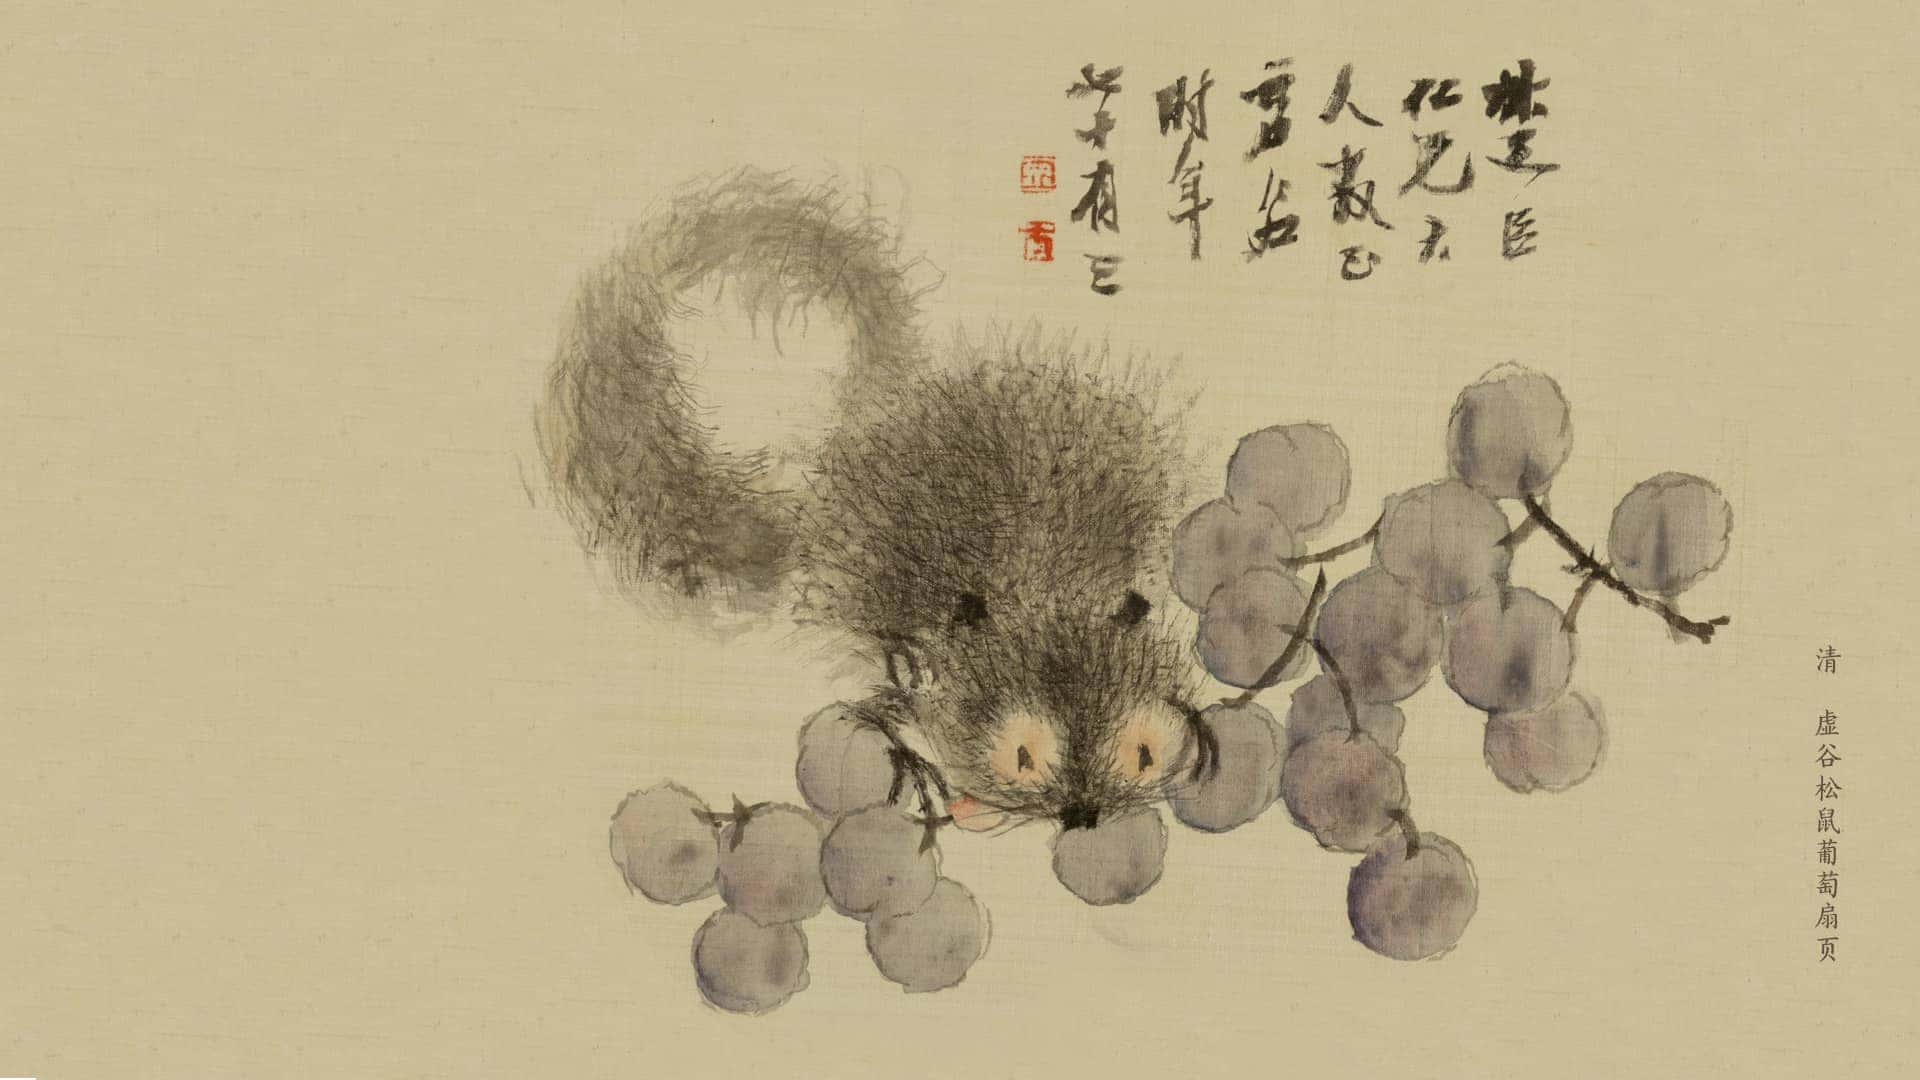 楚臣
仁兄大
人教正
虚谷
时年
七十有三
清 虚谷松鼠葡萄扇页